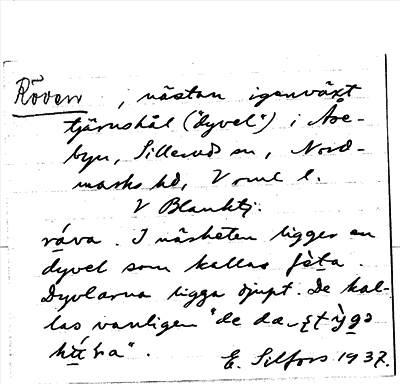 Röven, nästan igenväxt
tjärnshål ("dyvel") i Åse-
byn, Sillerud sn, Nord-
marks hd, Vrml l.
V Blanktj.
råva. I närheten ligger en
dyvel som kallas fèta.
Dyvlarna ligga djupt. De kal-
las vanligen "de
E. Silfors 1937.